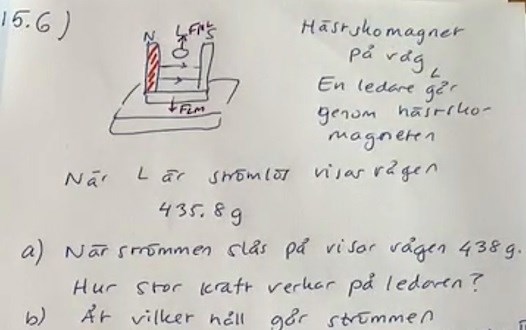 15.6)
N L FML S
FLM
Hästskomagnet
på våg
En ledare L går
genom hästsko-
magneten
När L är strömlös visar vågen
435.8g
a) När strömmen slås på visar vågen 438g.
Hur stor kraft verkar på ledaren?
b) Åt vilket håll går strömmen